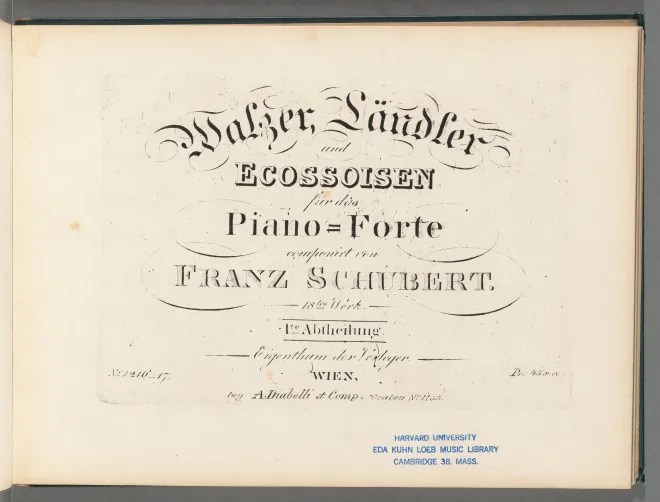 Walzer, Ländler
und
ECOSSOISEN
für das
Piano=Forte
componirt von
FRANZ SCHUBERT.
18tes Werk.
1te Abtheilung.
Eigenthum der Verleger.
WIEN,
bey A. Diabelli et Comp. Graben No. 1133.
No. 1216_17.
Pr.
HARVARD UNIVERSITY
EDA KUHN LOEB MUSIC LIBRARY
CAMBRIDGE 38, MASS.